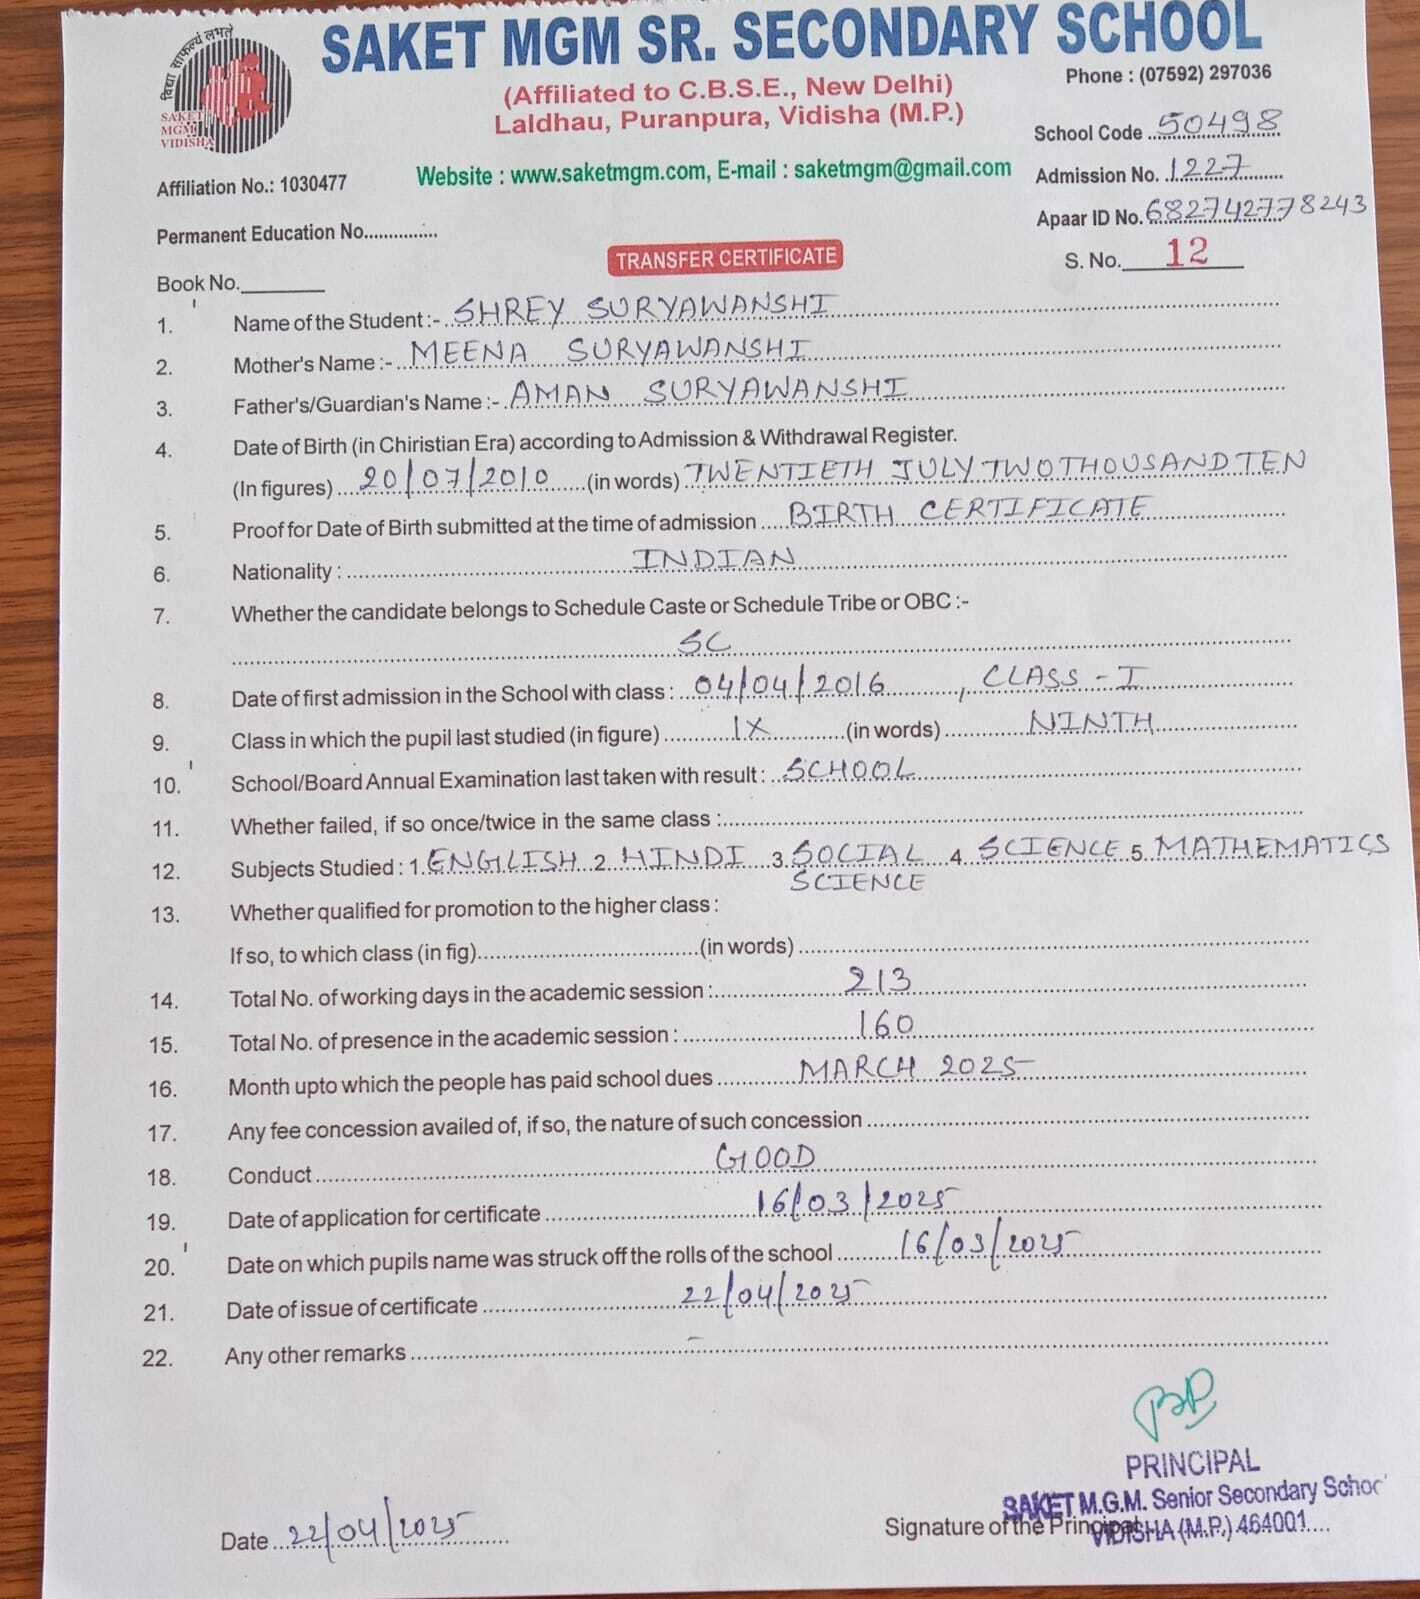 विद्या साफल्यं लभते
SAKET
MGM
VIDISHA
SAKET MGM SR. SECONDARY SCHOOL
(Affiliated to C.B.S.E., New Delhi)
Phone : (07592) 297036
Laldhau, Puranpura, Vidisha (M.P.)
School Code 50498
Website : www.saketmgm.com, E-mail : saketmgm@gmail.com
Affiliation No.: 1030477
Admission No. 1227
Apaar ID No. 682742778243
Permanent Education No..............
TRANSFER CERTIFICATE
S. No. 12
Book No.
1. Name of the Student :- SHREY SURYAWANSHI
2. Mother's Name :- MEENA SURYAWANSHI
3. Father's/Guardian's Name :- AMAN SURYAWANSHI
4. Date of Birth (in Chiristian Era) according to Admission & Withdrawal Register.
(In figures) 20/07/2010 (in words) TWENTIETH JULY TWO THOUSAND TEN
5. Proof for Date of Birth submitted at the time of admission BIRTH CERTIFICATE
6. Nationality : INDIAN
7. Whether the candidate belongs to Schedule Caste or Schedule Tribe or OBC :-
SC
8. Date of first admission in the School with class : 04/04/2016, CLASS - I
9. Class in which the pupil last studied (in figure) IX (in words) NINTH
10. School/Board Annual Examination last taken with result : SCHOOL
11. Whether failed, if so once/twice in the same class :
12. Subjects Studied : 1. ENGLISH 2. HINDI 3. SOCIAL 4. SCIENCE 5. MATHEMATICS
SCIENCE
13. Whether qualified for promotion to the higher class :
If so, to which class (in fig) (in words)
14. Total No. of working days in the academic session : 213
15. Total No. of presence in the academic session : 160
16. Month upto which the people has paid school dues MARCH 2025
17. Any fee concession availed of, if so, the nature of such concession
18. Conduct GOOD
19. Date of application for certificate 16/03/2025
20. Date on which pupils name was struck off the rolls of the school 16/03/2025
21. Date of issue of certificate 22/04/2025
22. Any other remarks -
PRINCIPAL
SAKET M.G.M. Senior Secondary School
Date 22/04/2025
Signature of the Principal
VIDISHA (M.P.) 464001